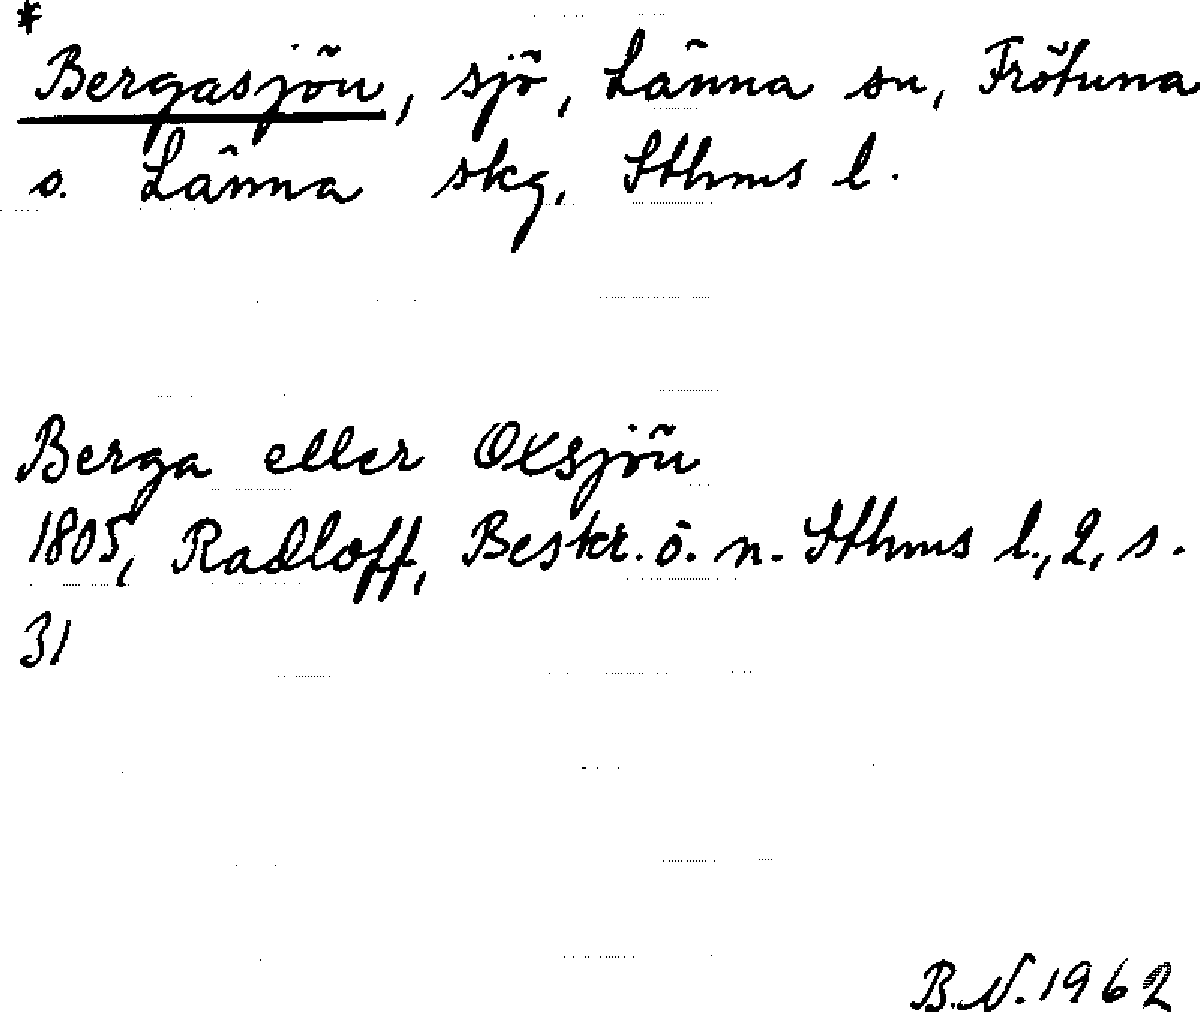 *
Bergasjön, sjö, Länna sn, Frötuna
o. Länna skg, Sthms l.
Berga eller Oxsjön
1805, Radloff, Beskr. ö. n. Sthms l., 2, s.
31
B.N. 1962